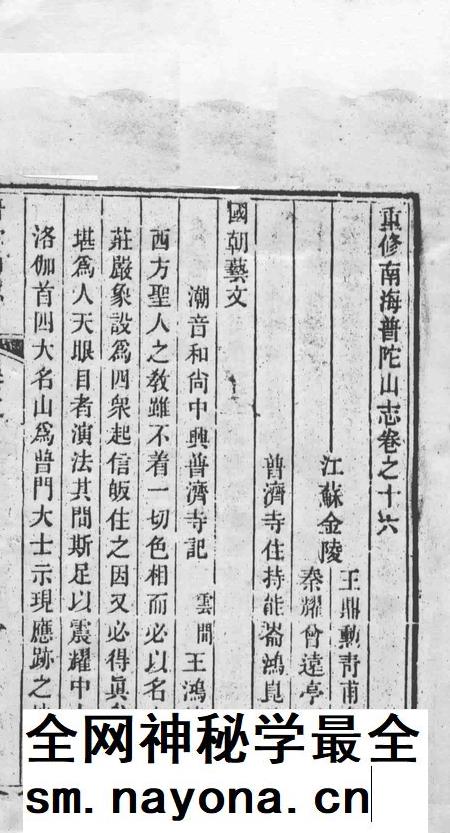 重修南海普陀山志卷之十六
江蘇金陵
王鼎勳青甫
秦耀曾遠亭
普濟寺住持能崙鴻崑
國朝藝文
潮音和尚中興普濟寺記
雲間
王鴻
西方聖人之教雖不着一切色相而必以名
莊嚴象設為四衆起信皈住之因又必得真
堪為人天眼目者演法其間斯足以震耀中
洛伽首四大名山為普門大士示現應跡之
全网神秘学最全
sm.nayona.cn